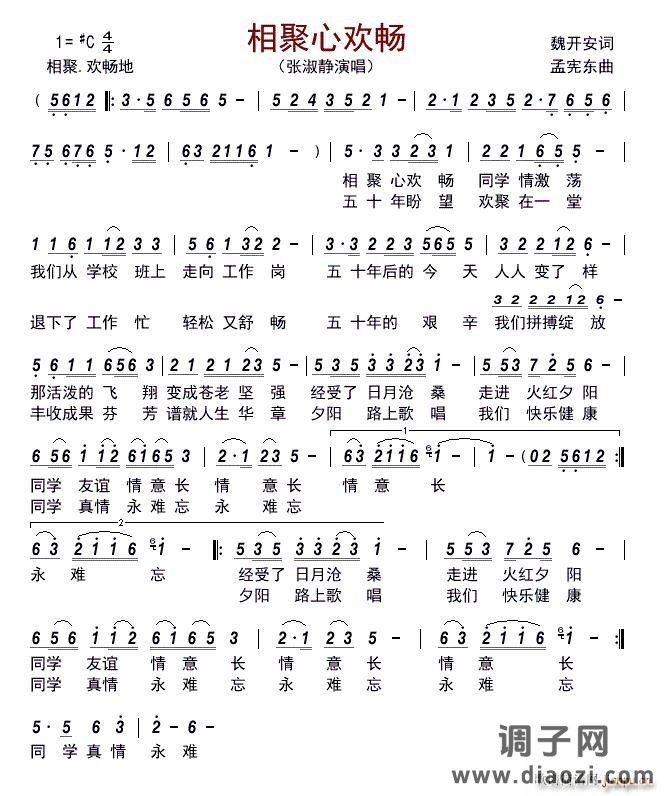 相聚心欢畅
1=♯C 4/4
魏开安词
相聚.欢畅地
（张淑静演唱）
孟宪东曲
( 5612 |: 3·5 656 5 - | 524 352 5 - | 2·1 235 2·7 656 |
75 676 5·12 | 63 2116 1 - | 1 - - ) | 5·3 3 23 1 | 2 2 1 65 5 - |
相聚心欢 畅 同学情激 荡
五十年盼 望 欢聚在一 堂
1 1 6 1 12 3 3 | 5 6 1 32 2 - | 3·3 2 3 2 2 565 | 5 3 2 12 6 - |
我们从 学校 班上 走向 工作 岗 五 十年后的 今 天 人人 变了 样
3 2 2212 6 -
退下了 工作 忙 轻松 又舒 畅 五 十年的 艰 辛 我们拼搏绽 放
5 6 1 1 1 656 3 | 2 1 2 1 2 2 3 - | 5 3 5 3 3 23 1 | 5 53 7 2 5 - |
那活泼的 飞 翔 变成苍老 坚 强 经受了 日月沧 桑 走进 火红夕 阳
丰收成果 芬 芳 谱就人生 华 章 夕阳 路上歌 唱 我们 快乐健 康
1
6 56 1 12 6165 3 | 2·1 23 3 - | 63 2116 1 - | 1 - (02 5612 :|
同学 友谊 情 意 长 情 意 长 情 意 长
同学 真情 永 难 忘 永 难 忘
2
6 3 2 1 1 6 1 - |: 5 35 3 3 23 1 - | 5 53 7 25 5 - |
永 难 忘 经受了 日月沧 桑 走进 火红夕 阳
夕阳 路上歌 唱 我们 快乐健 康
6 56 1 12 6 1 65 3 | 2·1 2 3 3 - | 6 3 2 1 1 6 1 - :|
同学 友谊 情 意 长 情 意 长 情 意 长
同学 真情 永 难 忘 永 难 忘 永 难 忘
5·5 6 3 | 2 - 6 -
同 学 真 情 永 难
调子网
www.diaozi.com